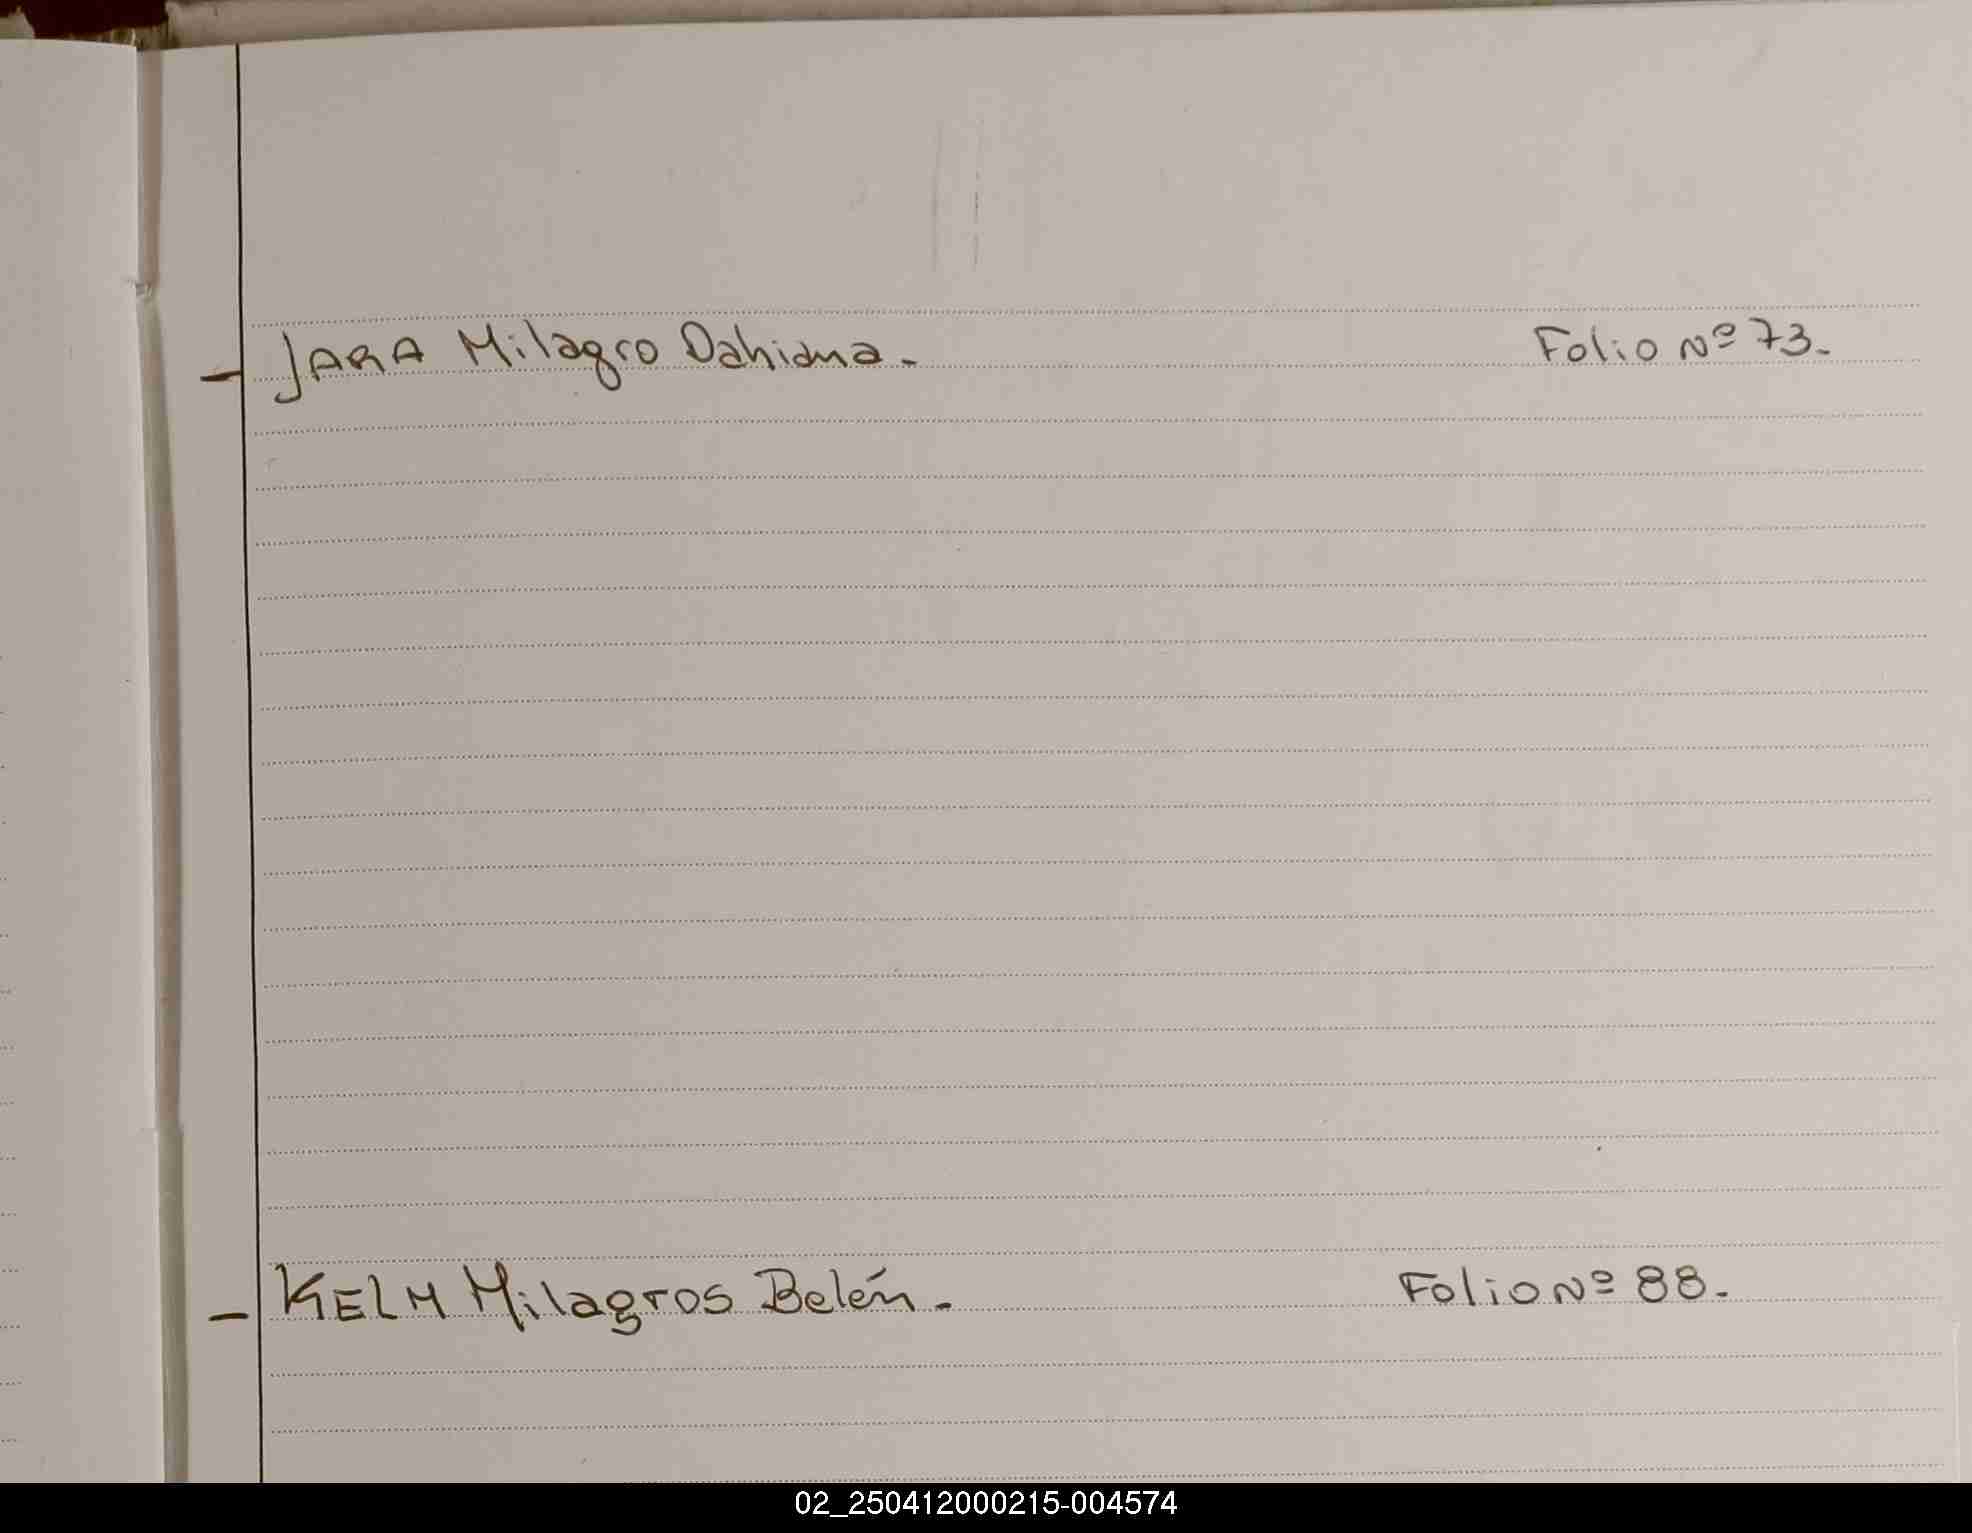 - JARA Milagro Dahiana. Folio Nº 73.
- KELM Milagros Belén. Folio Nº 88.
02_250412000215-004574